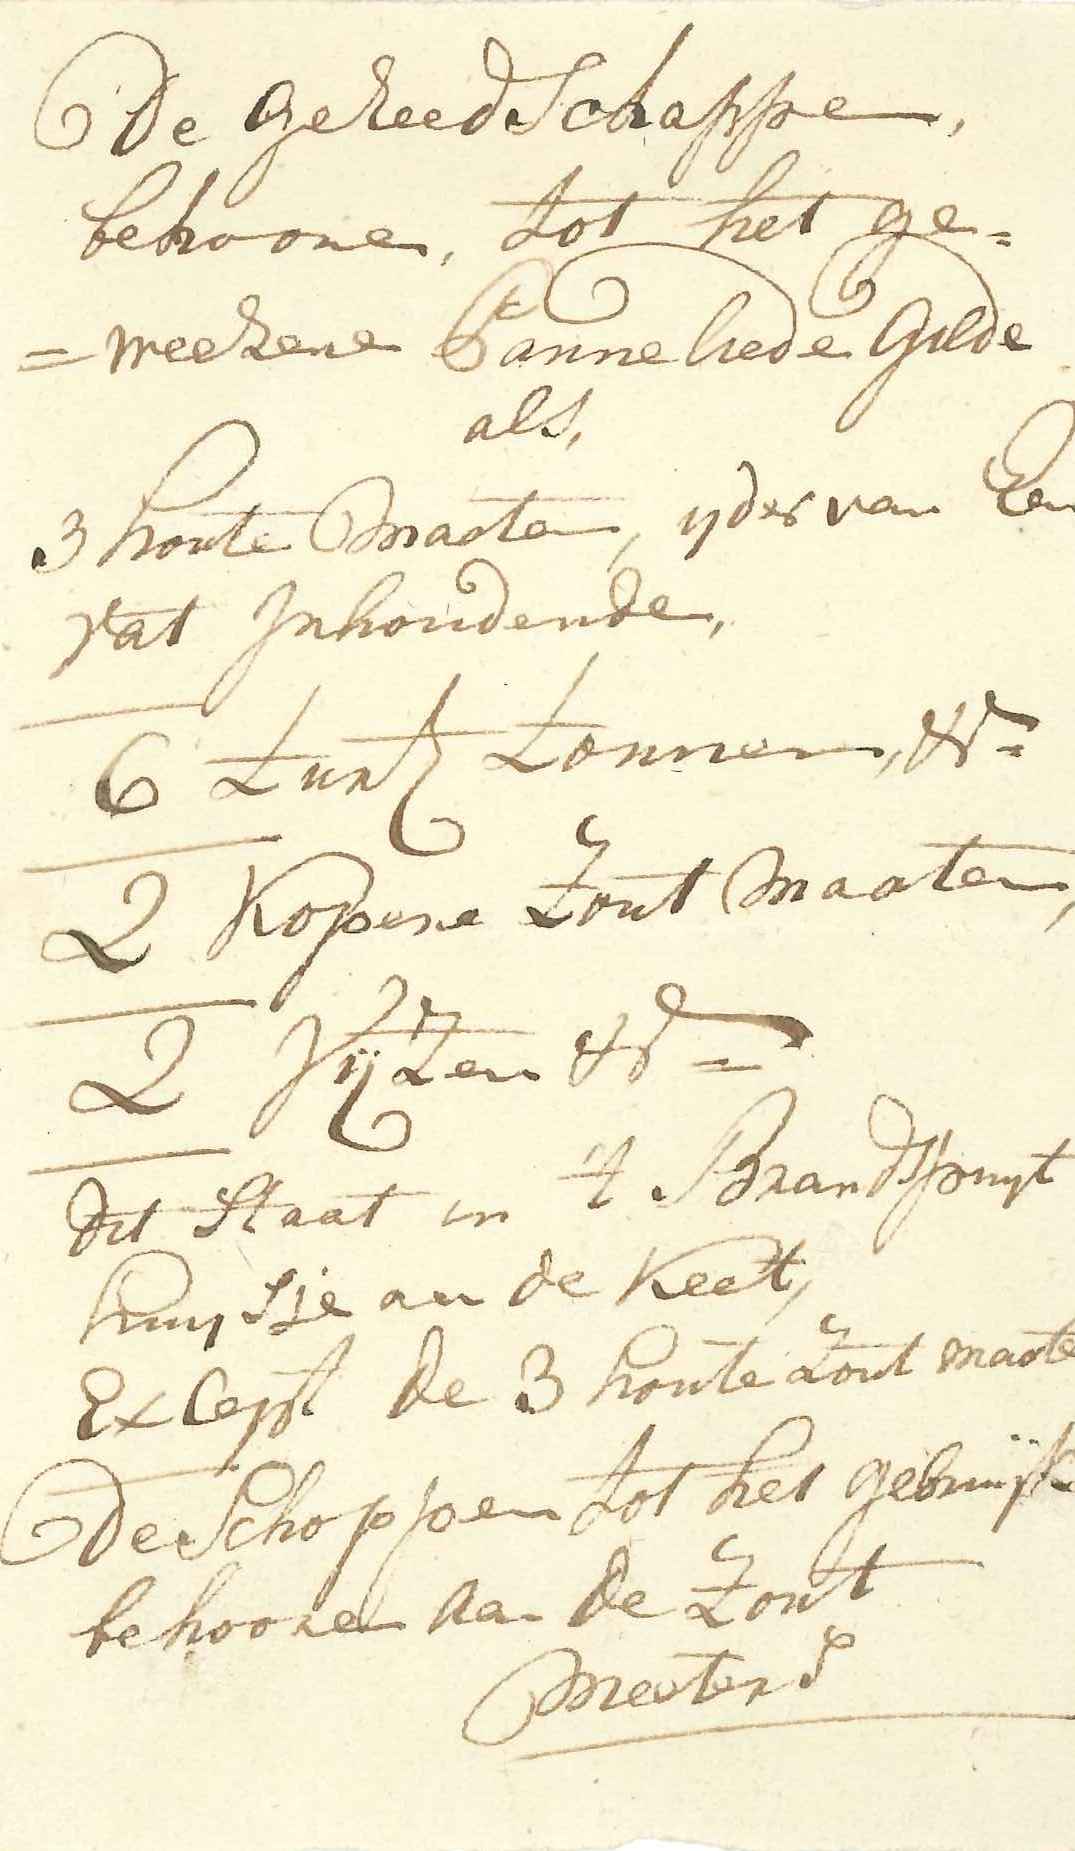 De gereedschappe,
behoorne, tot het ge=
=weezene Panneliede Gilde
als,
3 houte Maaten, ijder van Een
vat Inhoudende,
6 turf tonnen, &d=
2 Kopere Zout Maaten,
2 Yijzere &d=
dit Staat in 't Brandspuijt
huijsje aan de Keet,
Except de 3 houte Zout maate
De Schoppen tot het gebruijk
behooren aan de Zout
Meeters